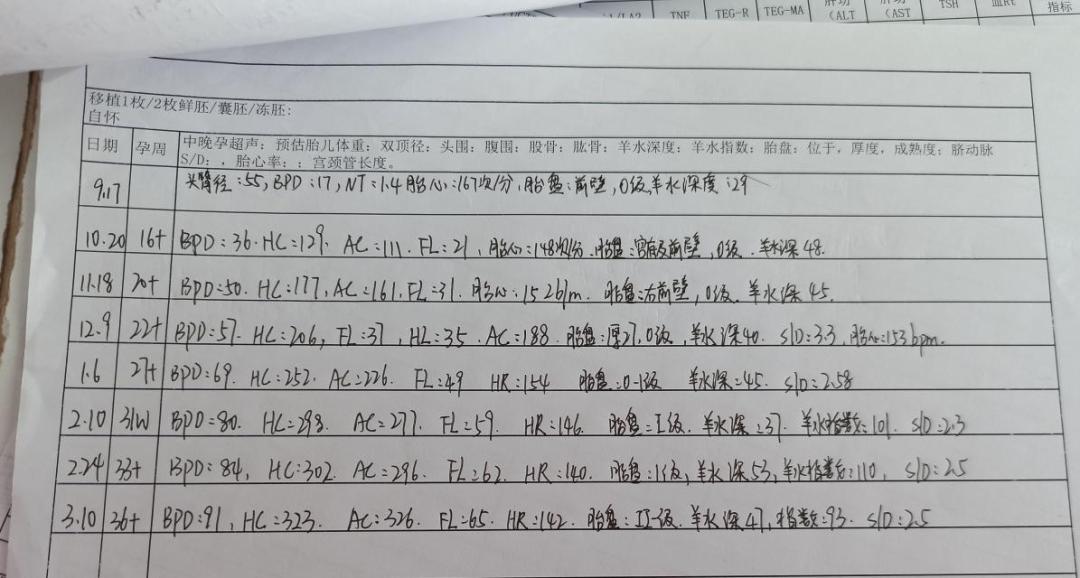 TNF TEG-R TEG-MA (ALT (AST TSH 指标
移植1枚/2枚鲜胚/囊胚/冻胚:
自怀
日期 孕周 中晚孕超声：预估胎儿体重：双顶径：头围：腹围：股骨：肱骨：羊水深度：羊水指数：胎盘：位于，厚度，成熟度；脐动脉
S/D：，胎心率：；宫颈管长度。
9.17 头臀径:55, BPD:17, NT:1.4 胎心:167次/分, 胎盘:前壁, 0级, 羊水深度:29
10.20 16+ BPD:36. HC:129. AC:111. FL:21, 胎心:148次/分. 胎盘:宫底及前壁, 0级. 羊水深48.
11.18 20+ BPD:50. HC:177, AC:161. FL:31. 胎心:152b/m. 胎盘:右前壁, 0级. 羊水深45.
12.9 22+ BPD:57. HC:206, FL:37, HL:35. AC:188. 胎盘:厚27, 0级, 羊水深40. S/D:3.3, 胎心:153bpm.
1.6 27+ BPD:69. HC:252. AC:226. FL:49 HR:154 胎盘:0-1级 羊水深:45. S/D:2.58
2.10 31W BPD:80. HC:298. AC:277. FL:59. HR:146. 胎盘:I级. 羊水深:37. 羊水指数:101. S/D:2.3
2.24 33+ BPD:84, HC:302. AC:296. FL:62. HR:140. 胎盘:1级, 羊水深53, 羊水指数:110, S/D:2.5
3.10 36+ BPD:91, HC:323. AC:326. FL:65. HR:142. 胎盘:II-级. 羊水深47, 指数:93. S/D:2.5